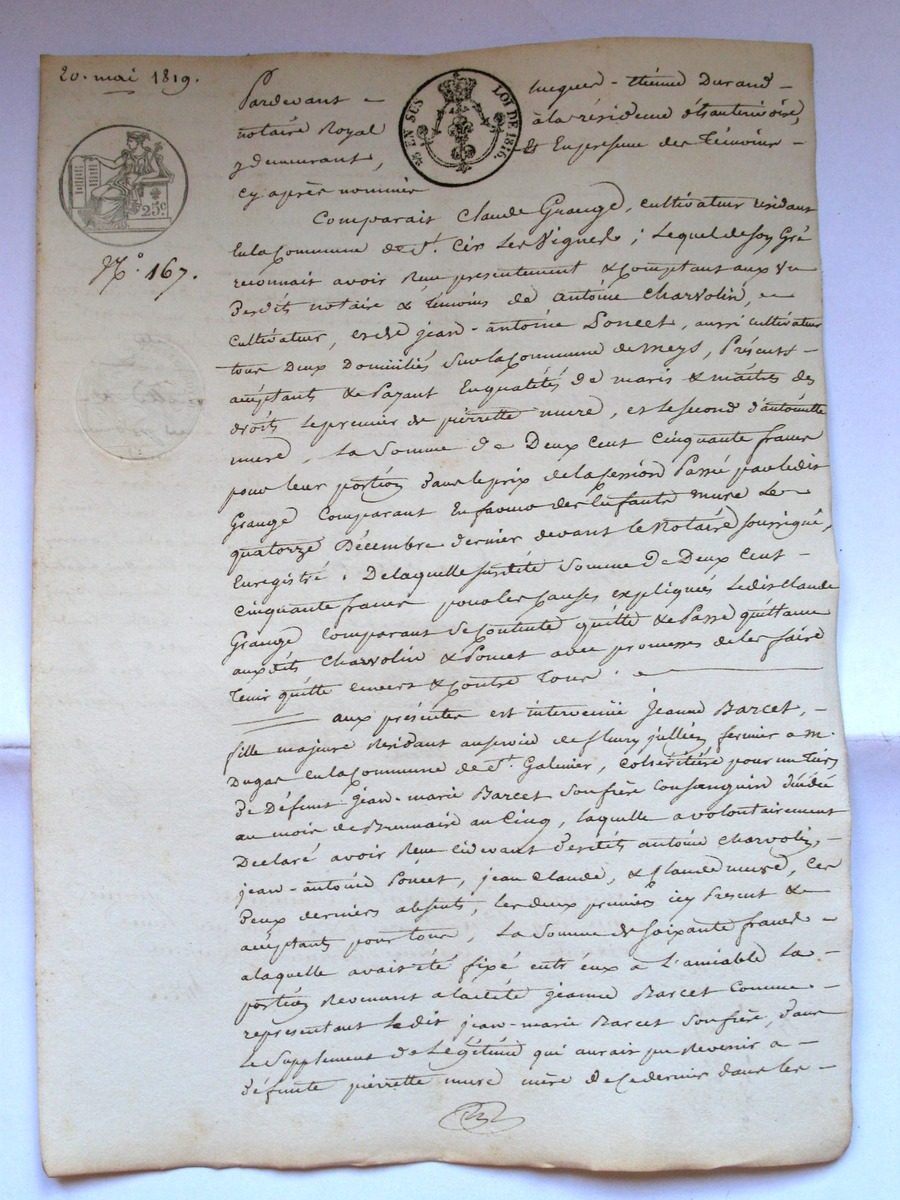 20. mai 1819.
25 EN SUS LOI DE 1816.
25 c
N.° 167.
Pardevant Jacques-Etienne Durand
notaire Royal à la résidence
y demeurant, Et En presence des Témoins
cy après nommés
Comparait Claude Grange, cultivateur résidant
En la Commune de St. Cir Les Vignes ; Lequel de son Gré
reconnait avoir Reçu presentement & Comptant aux vu
Desdits notaire & Témoins de antoine Charvolin,
cultivateur, et de jean-antoine Poncet, aussi cultivateur
tous Deux Domiciliés sur la Commune de meys, Présents
acéptants & Payant En qualités de maris & maîtres des
droits Le premier de pierrette mure, et le second d'antoinette
mure, La Somme de Deux Cent Cinquante francs
pour leur portion dans le prix de la session Passé par ledit
Grange Comparant En faveur des Enfants mure Le
quatorze Décembre dernier devant le Notaire soussigné,
Enregistré. De laquelle susdite Somme de Deux Cent
Cinquante francs pour les Causes expliqués Ledit Claude
Grange Comparant Se Contente quitte & Passe quittance
auxdits Charvolin & Poncet avec promesses de les faire
Tenir quitte envers & Contre Tous.
aux présentes est intervenue Jeanne Barcet,
fille majeure Résidant au de fleury jullien fermier a M.
Dugas En la Commune de St. Galmier, Cohéritière pour un Tiers
De Défunt Jean-marie Barcet Son frère Consanguin Décédé
au mois de Brumaire an Cinq, laquelle a volontairement
Déclaré avoir Reçu Cidevant Desdits antoine Charvolin,
jean-antoine Poncet, jean Claude, & Claude mure, Ces
Deux derniers absents, les deux premiers icy Présent &
acéptants pour tous, La Somme de Soixante francs
a laquelle avait été fixé entr'eux a L'amiable La
portion Revenant a ladite Jeanne Barcet Comme
représentant Ledit jean-marie Barcet Son frère, Dans
Le Supplement de Légitime qui aurait pu Revenir a
défunte pierrette mure mère de Ce dernier dans les